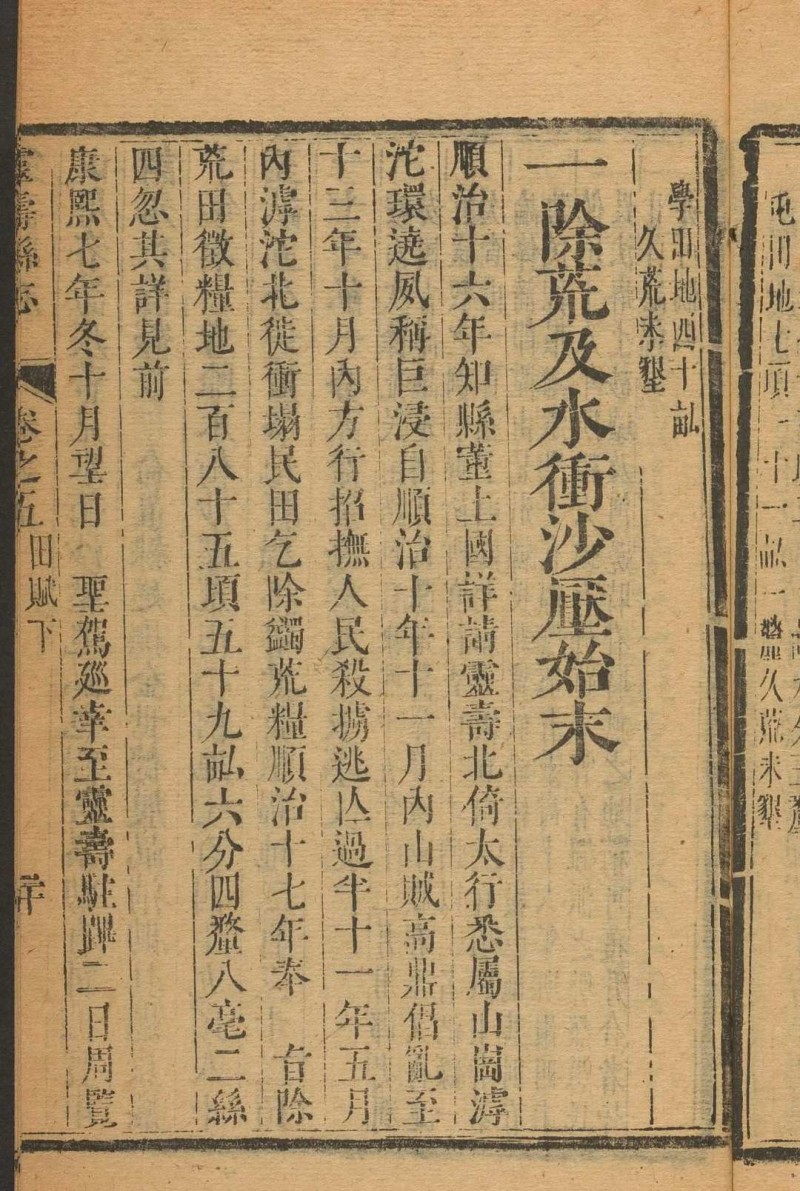 屯田地七頃二十一畝一
久荒未墾
學田地四十畝
久荒未墾
一除荒及水衝沙壓始末
順治十六年知縣董上國詳請靈壽北倚太行悉屬山崗滹
沱環遶夙稱巨浸自順治十年十一月內山賊高鼎倡亂至
十三年十月內方行招撫人民殺擄逃亾過半十一年五月
內滹沱北徙衝塌民田乞除蠲荒糧順治十七年奉　旨除
荒田徵糧地二百八十五頃五十九畝六分四釐八毫二絲
四忽其詳見前
康熙七年冬十月朢日　聖駕廵幸至靈壽駐蹕二日周覽
靈壽縣志　卷之五　田賦下